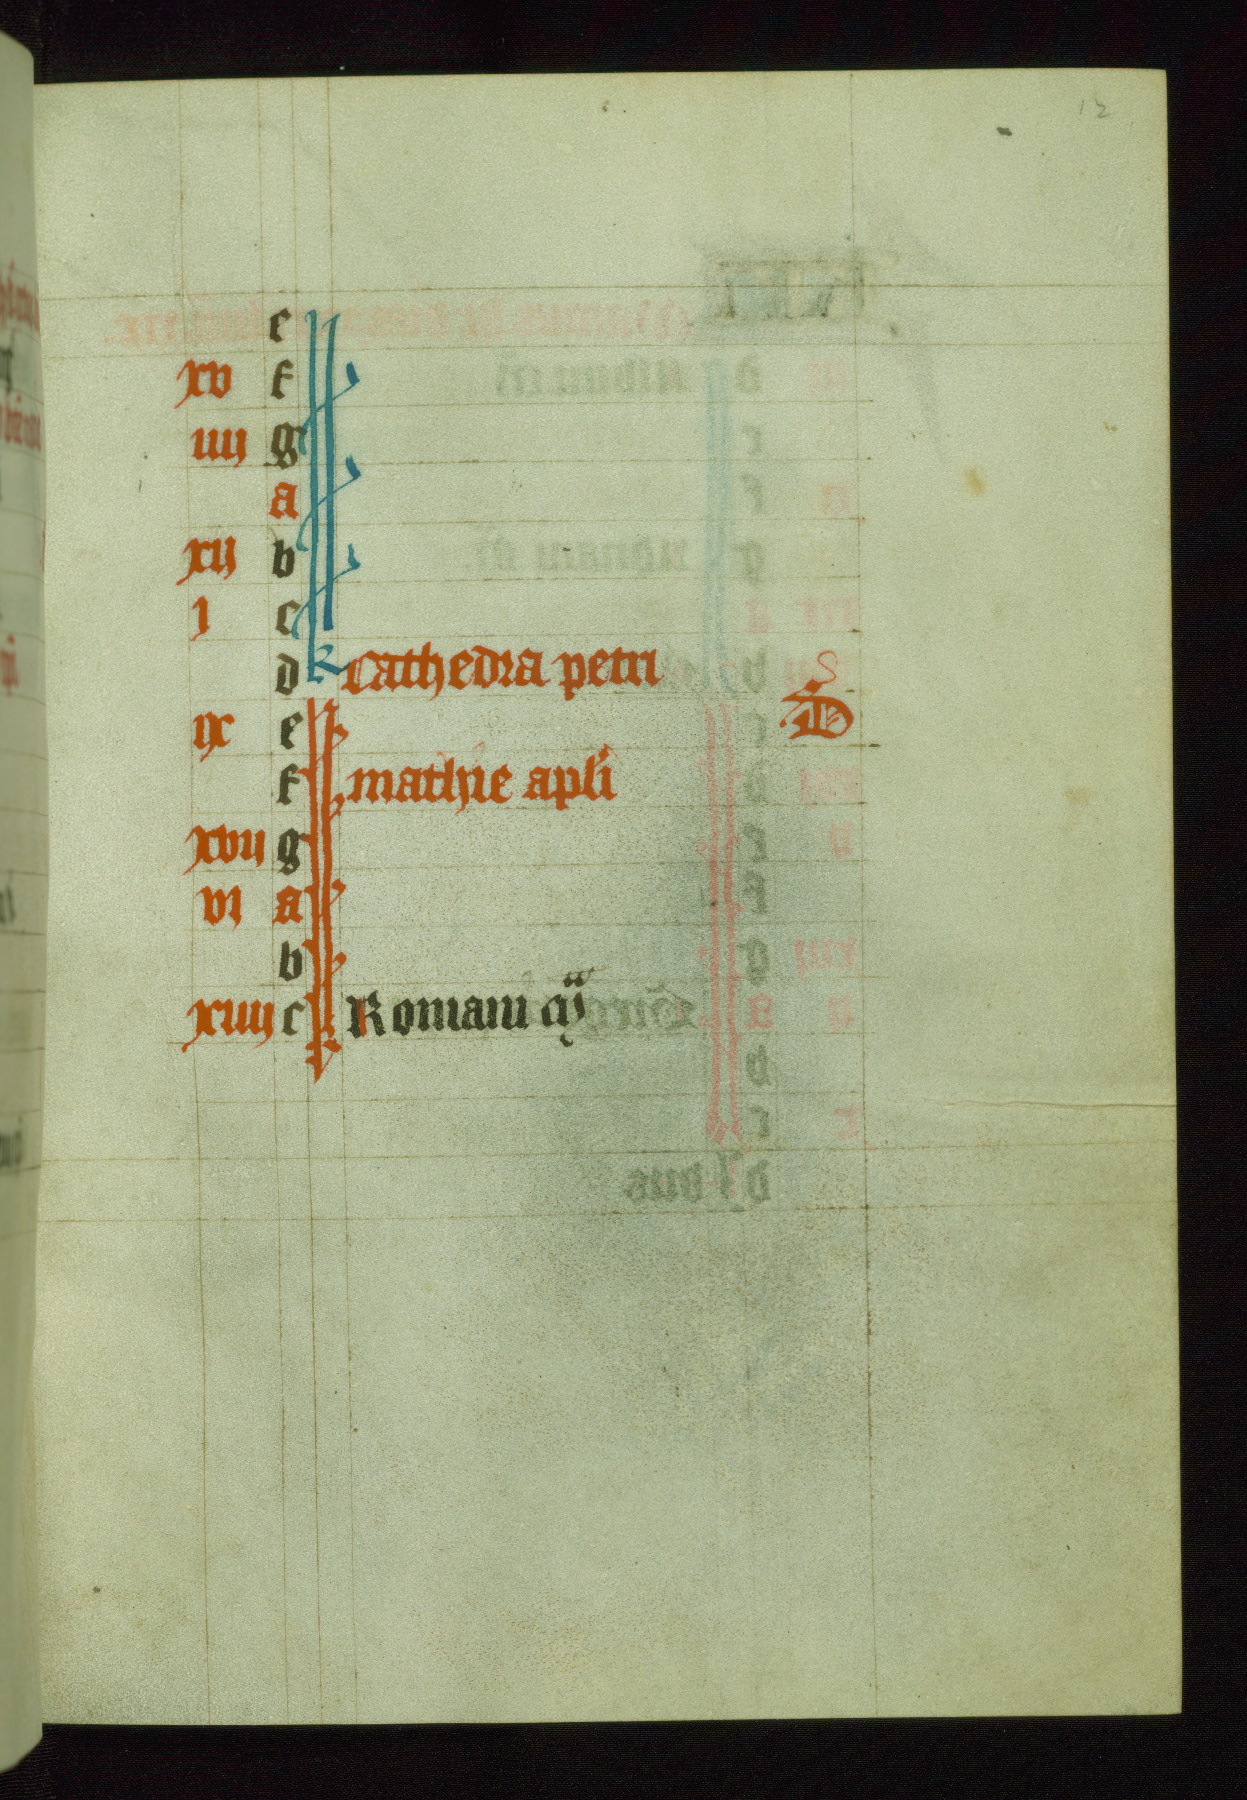 12
e
xv f
iiij g
a
xij b
i c
d kl Cathedra petri
ix e D
f mathie apli
xvii g
vi a
b
xiiij c kl Romani